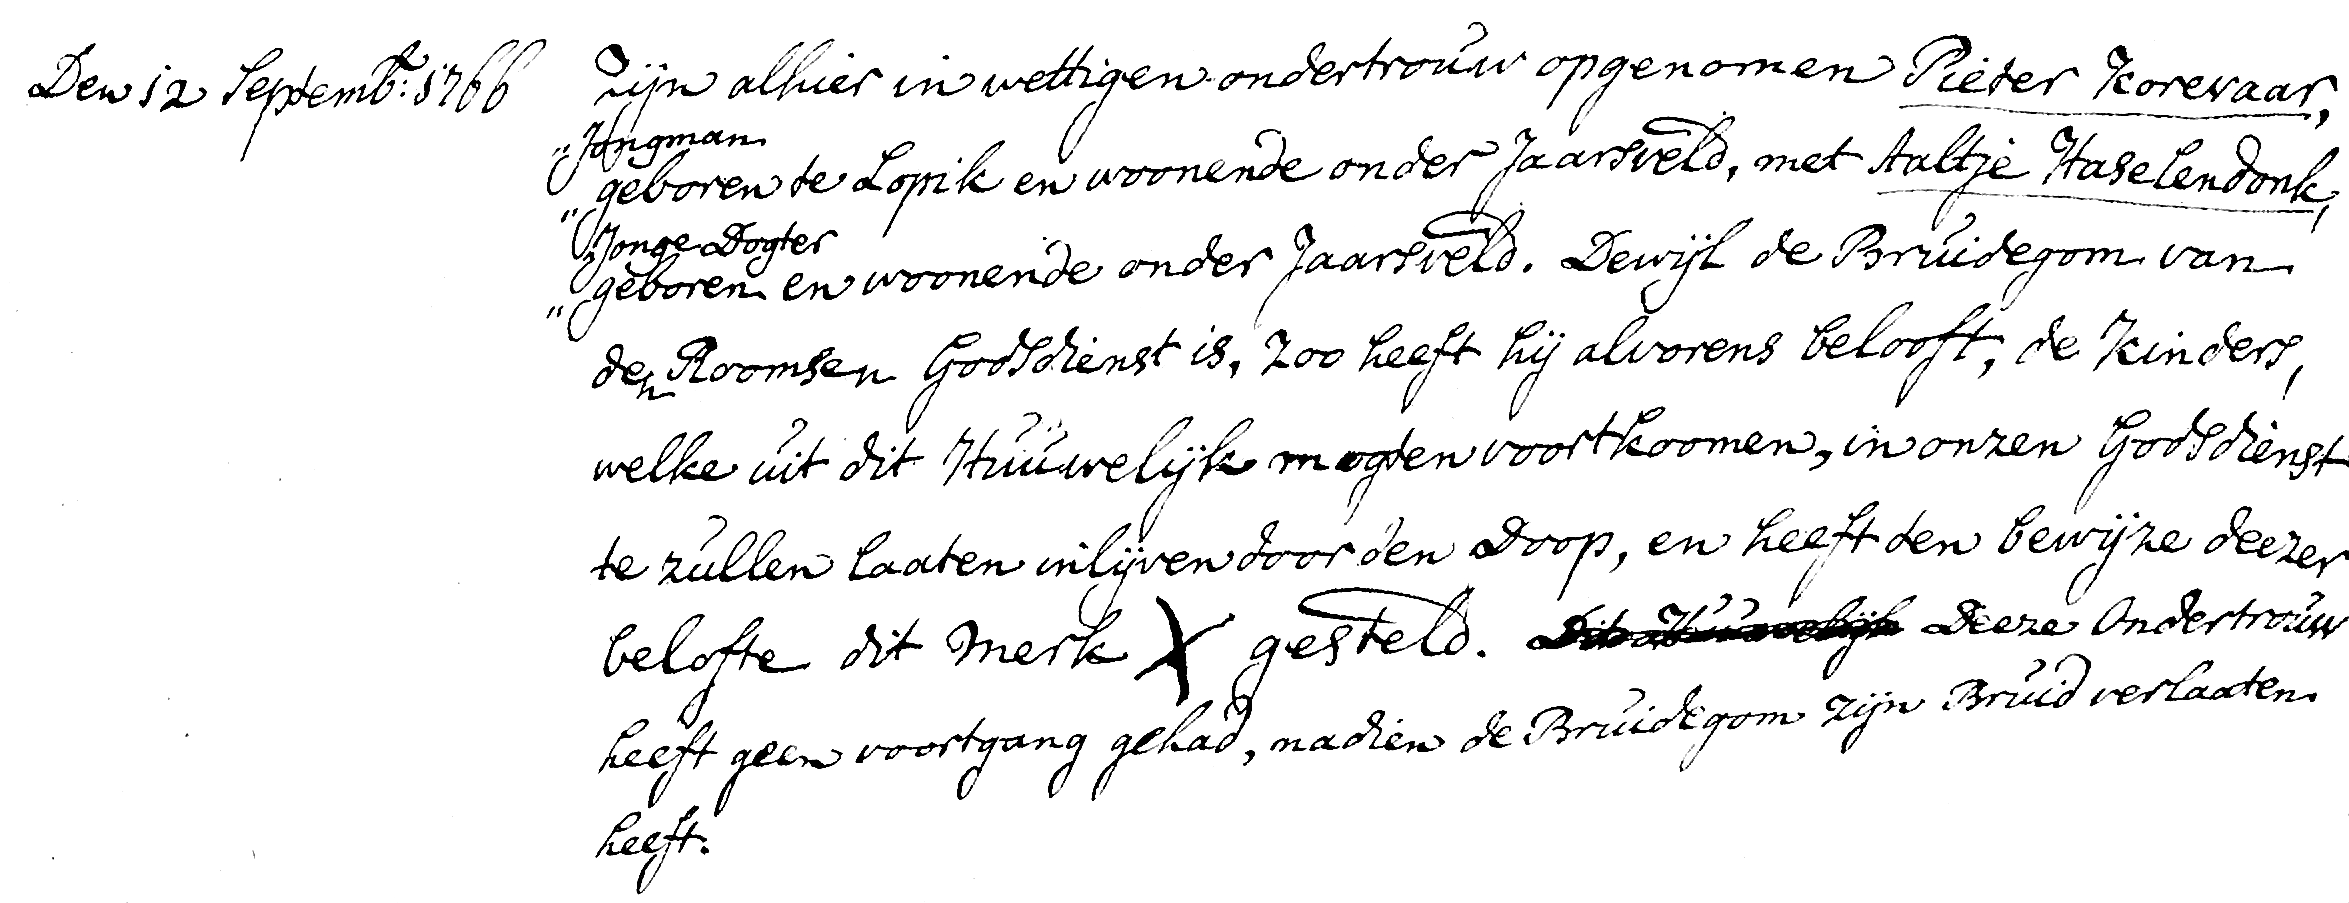 Den 12 Septemb: 1766 Zijn alhier in wettigen ondertrouw opgenomen Pieter Korevaar,
"Jongman
geboren te Lopik en woonende onder Jaarsveld, met Aaltje Haselendonk,
"Jonge Dogter
geboren en woonende onder Jaarsveld. Dewijl de Bruidegom van
"
den Roomsen Godsdienst is, zoo heeft hij alvorens belooft, de Kinders,
welke uit dit Huuwelijk mogten voortkoomen, in onzen Godsdienst
te zullen laaten inlijven door den Doop, en heeft ten bewijze deezer
belofte dit Merk X gesteld. Dit Huuwelijk Deeze Ondertrouw
heeft geen voortgang gehad, nadien de Bruidegom zijn Bruid verlaaten
heeft.